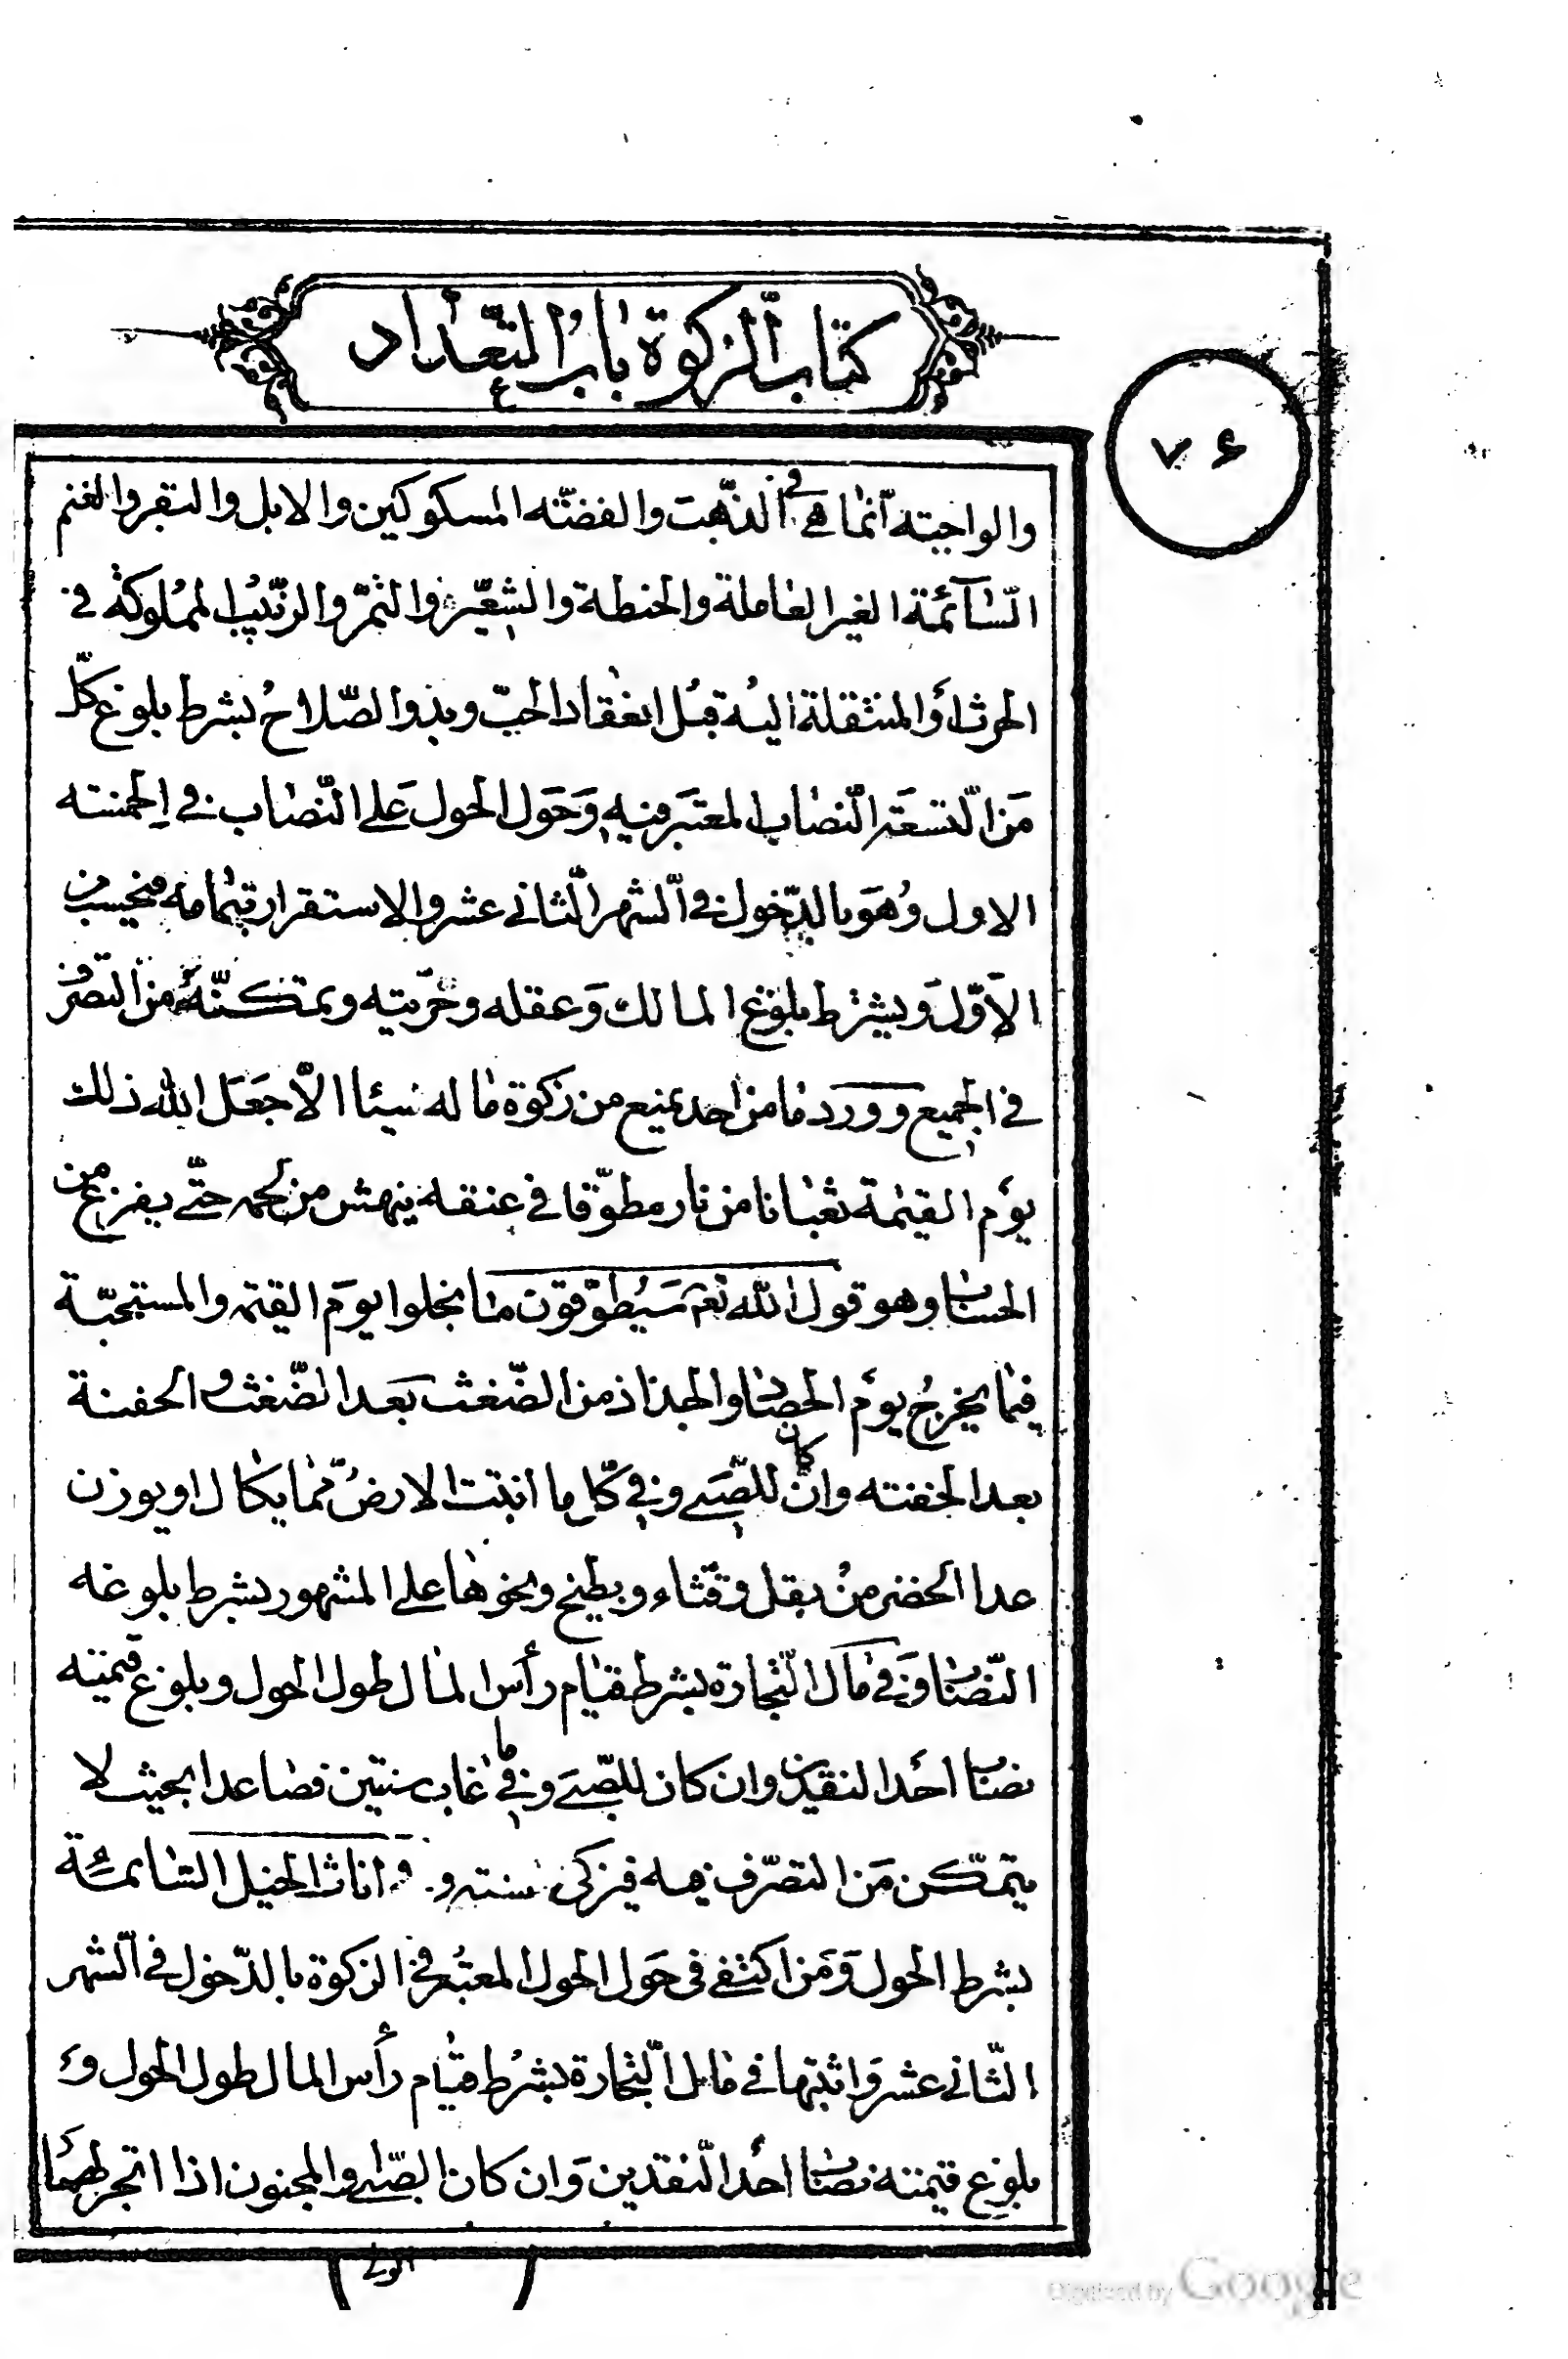 كتاب الزكوة باب التعداد
٧۶
والواجبة انما هي في الذهب والفضة المسكوكين والابل والبقر والغنم
السّائمة الغير العاملة والحنطة والشعير والتمر والزبيب المملوكة في
الحرث او المنتقلة اليه قبل انعقاد الحبّ وبدو الصّلاح بشرط بلوغ كلّ
من التسعة النّصاب المعتبر فيه وحول الحول على النّصاب في الخمسة
الاول وهو بالدّخول في الشّهر الثّاني عشر والاستقرار بتمامه فيحسب من
الاوّل ويشترط بلوغ المالك وعقله وحرّيته وتمكّنه من التصرف
في الجميع وورد ما من احد يمنع من زكوة ماله شيئا الّا جعل الله ذلك
يوم القيمة ثعبانا من نار مطوّقا في عنقه ينهش من لحمه حتّى يفرغ من
الحساب وهو قول الله تعم سيطوّقون ما بخلوا يوم القيمة والمستحبّة
فيما يخرج يوم الحصاد والجذاذ من الضّغث بعد الضّغث والحفنة
بعد الحفنة وان كان للصّبي وفي كل ما انبتت الارض ممّا يكال او يوزن
عدا الخضر من بقل وقثّاء وبطيخ ونحوها على المشهور بشرط بلوغه
النّصاب وفي مال التّجارة بشرط قيام رأس المال طول الحول وبلوغ قيمته
نصاب احد النقدين وان كان للصّبي وفي ما غاب سنتين فصاعدا بحيث لا
يتمكّن من التصرّف فيه فيزكى سنة و في اناث الخيل السّائمة
بشرط الحول ومن اكتفى في حول الحول المعتبر في الزكوة بالدّخول في الشّهر
الثّاني عشر واثبتها في مال التّجارة بشرط قيام رأس المال طول الحول و
بلوغ قيمته نصاب احد النّقدين وان كان الصّبي والمجنون اذا اتجر لهما
الولي
Digitized by Google